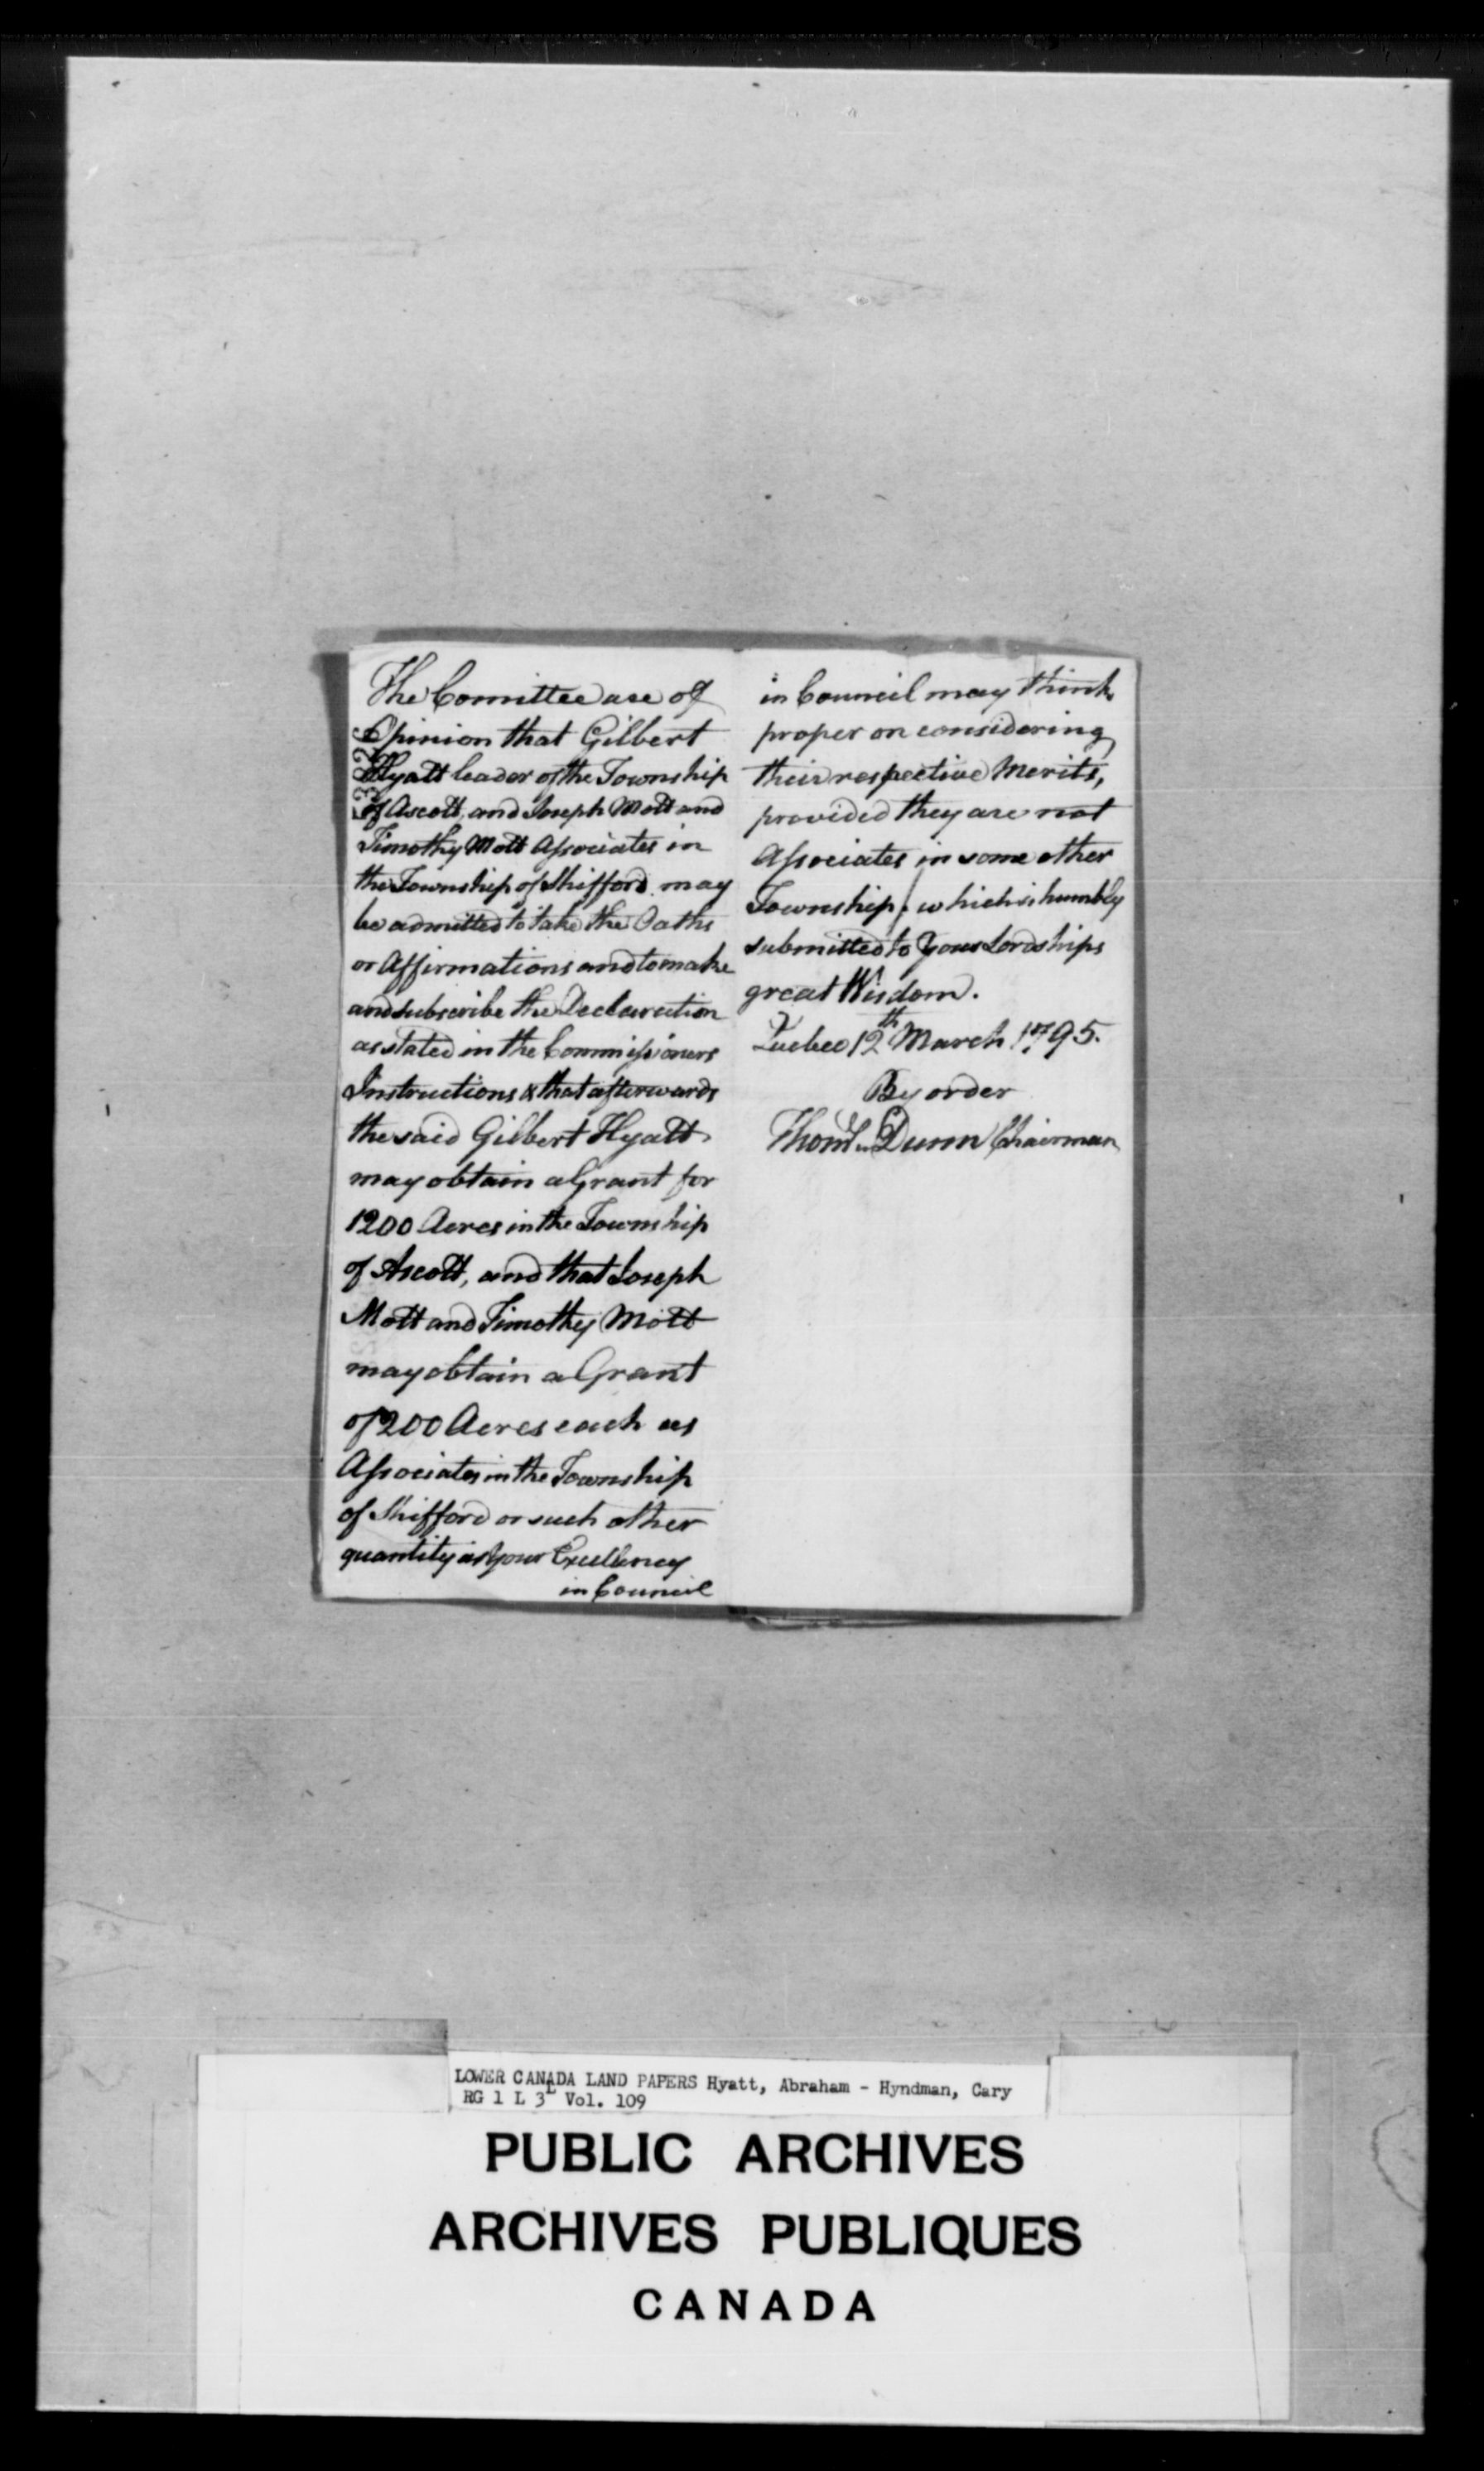 The Committee are of
Opinion that Gilbert
Hyatt leader of the Township
of Ascott, and Joseph Mott and
Timothy Mott Associates in
the Township of Shifford may
be admitted to take the Oaths
or Affirmations and to make
and subscribe the Declaration
as stated in the Commissioners
Instructions & that afterwards
the said Gilbert Hyatt
may obtain a Grant for
1200 Acres in the Township
of Ascott, and that Joseph
Mott and Timothy Mott
may obtain a Grant
of 200 Acres each as
Associates in the Township
of Shifford or such other
quantity as Your Excellency
in Council
in Council may think
proper on considering
their respective Merits,
provided they are not
Associates in some other
Township; which is humbly
submitted to Your Lordships
great Wisdom.
Quebec 12th March 1795.
By order
Thos Dunn Chairman
LOWER CANADA LAND PAPERS Hyatt, Abraham - Hyndman, Cary
RG 1 L 3L Vol. 109
PUBLIC ARCHIVES
ARCHIVES PUBLIQUES
CANADA